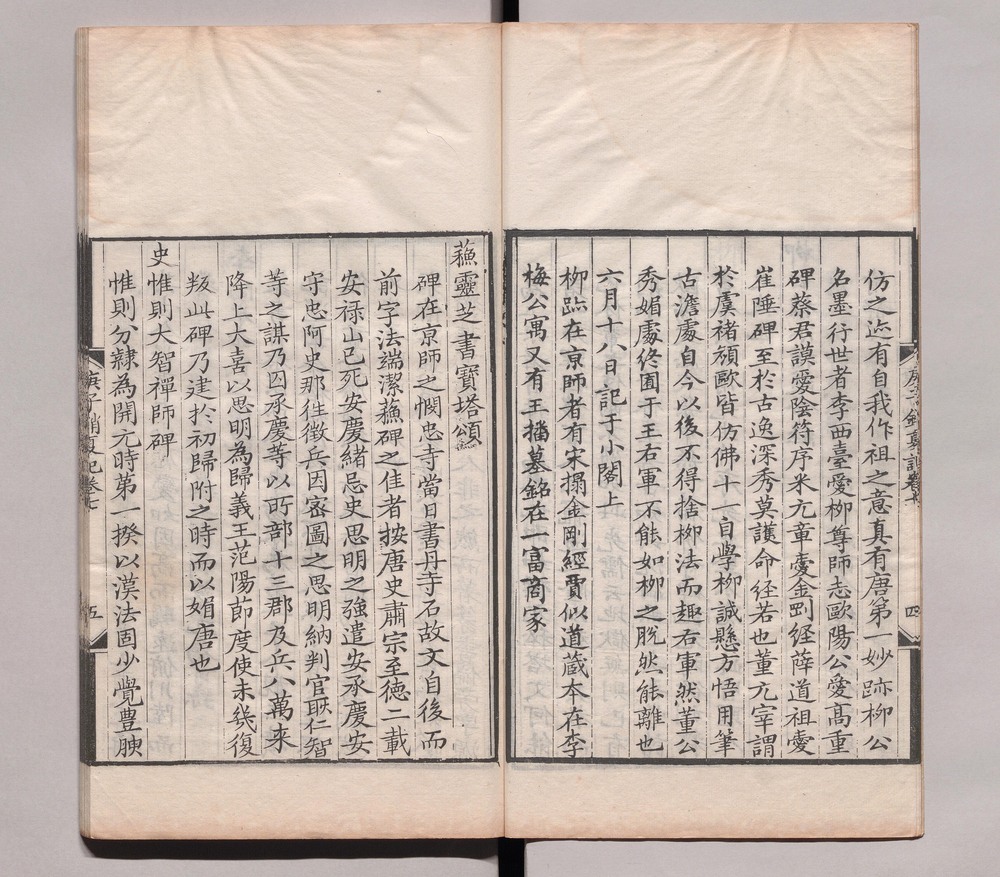 仿之迹有自我作祖之意真有唐第一妙跡柳公
名墨行世者李西臺愛柳尊師志歐陽公愛高重
碑蔡君謨愛陰符序米亢章愛金剛経薛道祖愛
崔陲碑至於古逸深秀莫護命経若也董亢宰謂
於虞褚顔歐皆仿佛十一自學柳誠懸方悟用筆
古澹處自今以後不得捨柳法而趣右軍然董公
秀媚處終囿于王右軍不能如柳之脫然能離也
六月十八日記于小閣上
柳跡在京師者有宋搨金剛經賈似道蔵本在李
梅公寓又有王播墓銘在一富商家
四
蘓靈芝書寶塔頌
碑在京師之憫忠寺當日書丹寺石故文自後而
前字法端潔蘓碑之佳者按唐史肅宗至徳二載
安禄山已死安慶緒忌史思明之強遣安承慶安
守忠阿史那徃徴兵因宻圖之思明納判官耿仁智
等之謀乃囚承慶等以所部十三郡及兵八萬来
降上大喜以思明為歸義王范陽莭度使未幾復
叛此碑乃建於初歸附之時而以媚唐也
史惟則大智禪師碑
惟則分隷為開元時第一揆以漢法固少覺豊腴
庚子銷夏記卷七
五